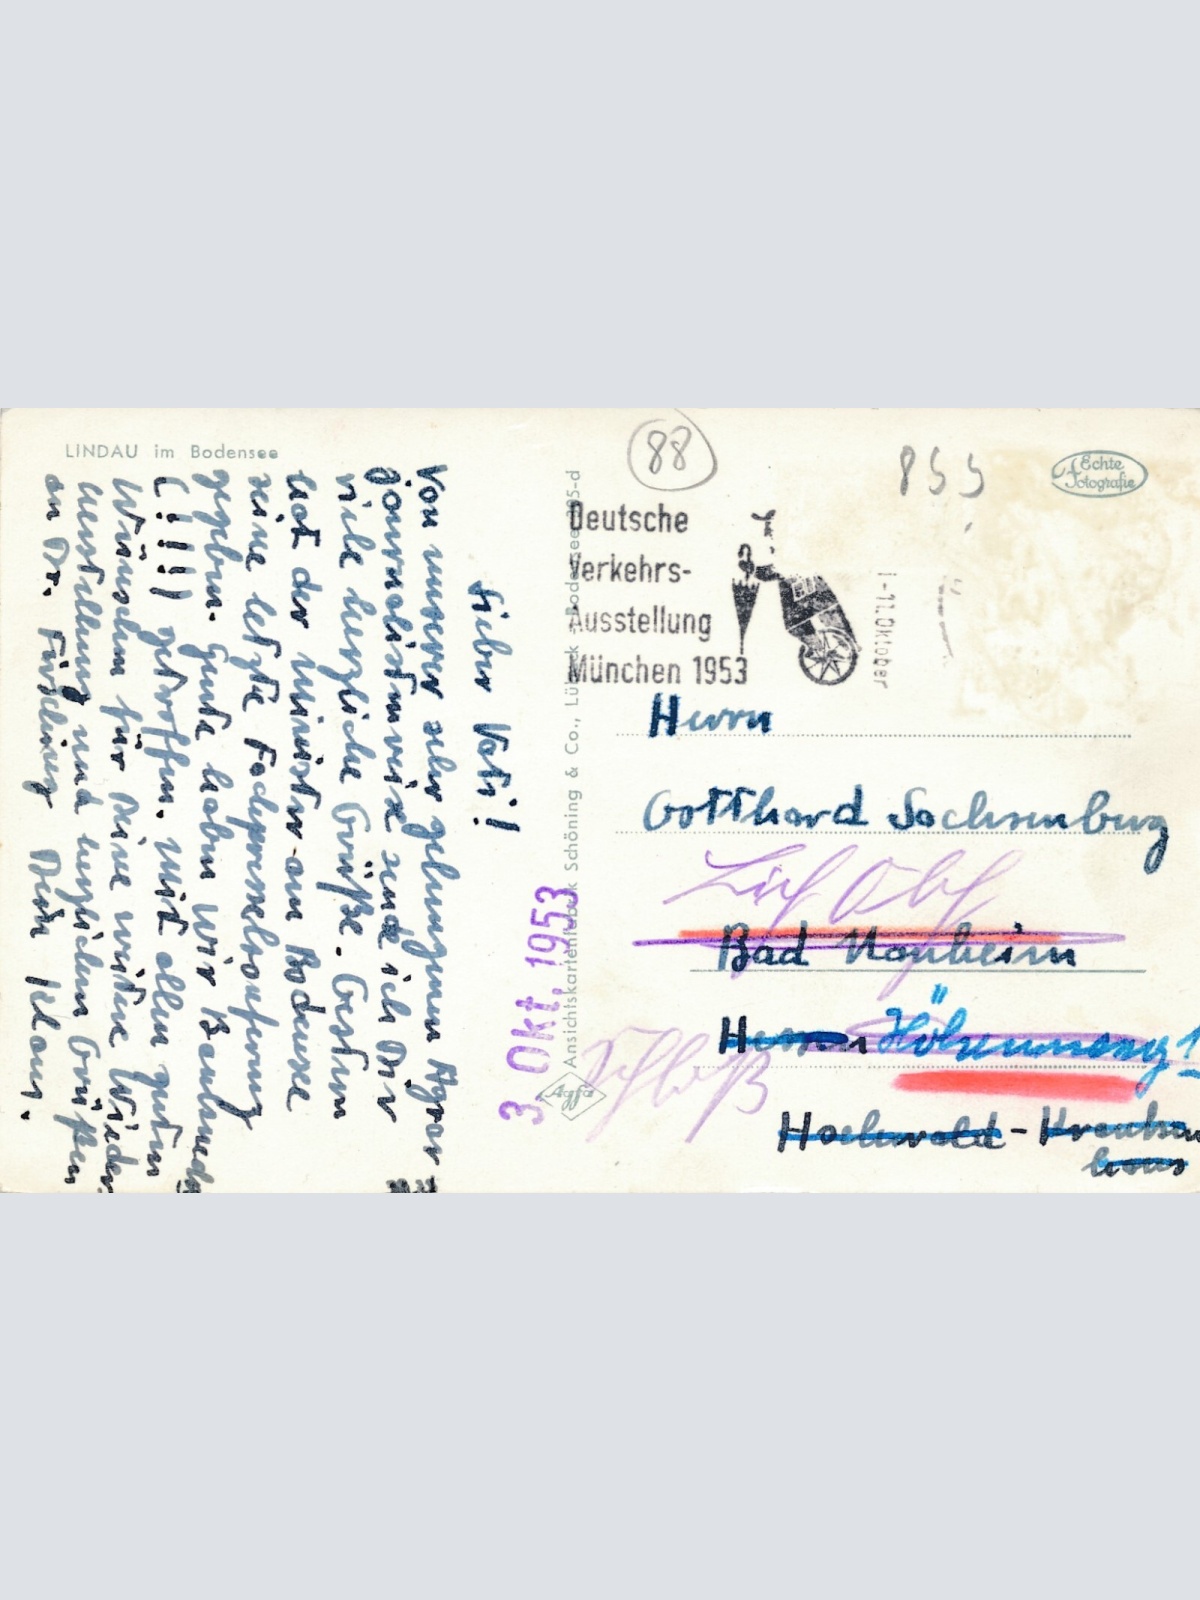 LINDAU im Bodensee
Lieber Vati!
Von unserer sehr gelungenen Agrar
journalistenreise sende ich Dir
viele herzliche Grüße. Gestern
hat der Minister am Bodensee
seine letzte Fachpressekonferenz
gegeben. Heute haben wir
(!!!!) getroffen. Mit allen guten
Wünschen für Deine weitere Wieder
herstellung und herzlichen Grüßen
an Dr.
Dein Klaus.
Ansichtskartenfabrik Schöning & Co., Lübeck
Bodensee 295-d
Agfa
3. Okt. 1953
88
855
Echte
Fotografie
Deutsche
Verkehrs-
Ausstellung
München 1953
-11.Oktober
Herrn
Gotthard Sachsenburg
Bad Nauheim
Hessen
Hochwald - Kranken
haus
Schloß